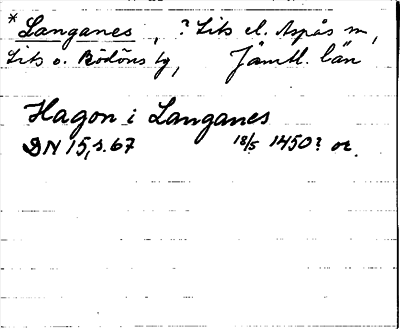 *Langanes, ? Lits el. Aspås sn,
Lits o. Rödöns tg, Jämtl. län
Hagon i Langanes
DN 15, s. 67 18/5 1450? or.